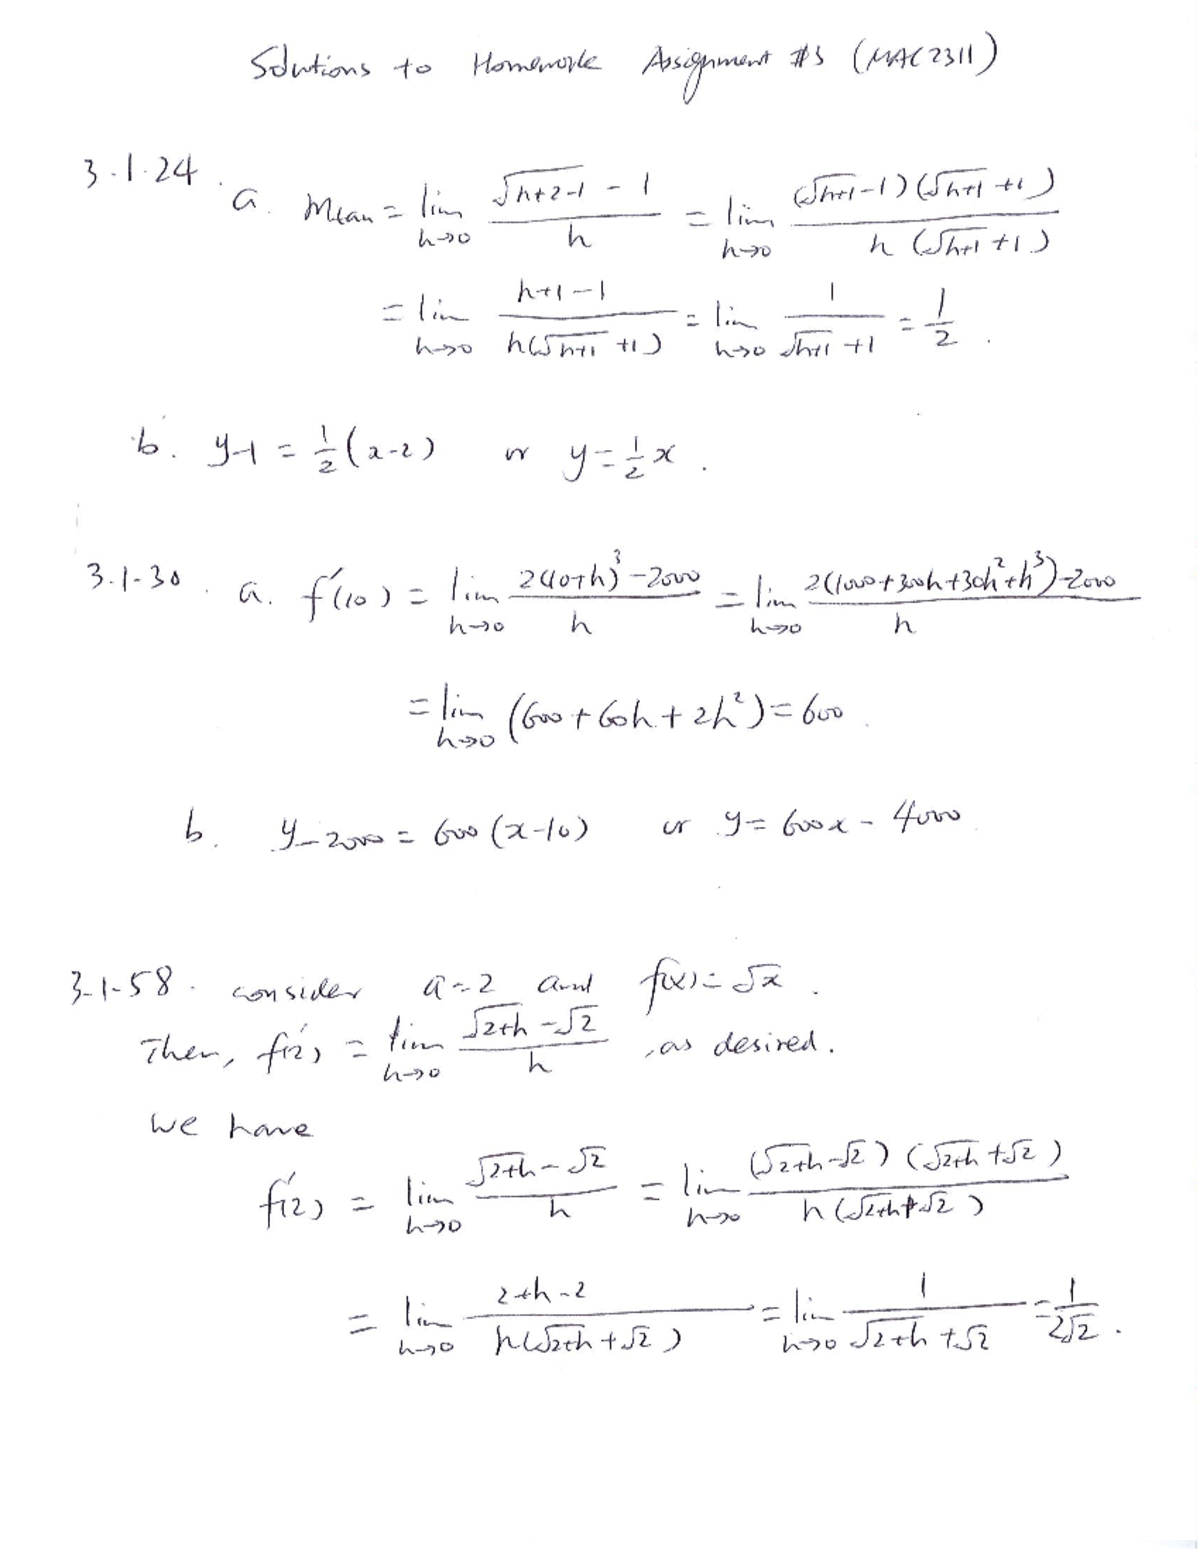 Solutions to Homework Assignment #3 (MAC2311)
3.1.24. a. Mtan = lim h→0 (√(h+2-1) - 1)/h = lim h→0 (√(h+1) - 1)(√(h+1) + 1)/(h(√(h+1) + 1))
= lim h→0 (h+1-1)/(h(√(h+1) + 1)) = lim h→0 1/(√(h+1) + 1) = 1/2.
b. y-1 = 1/2(x-2) or y = 1/2 x.
3.1.30. a. f'(10) = lim h→0 (2(10+h)³ - 2000)/h = lim h→0 (2(1000+300h+30h²+h³) - 2000)/h
= lim h→0 (600 + 60h + 2h²) = 600.
b. y-2000 = 600(x-10) or y = 600x - 4000
3-1-58. consider a=2 and f(x) = √x.
Then, f'(2) = lim h→0 (√(2+h) - √2)/h, as desired.
we have
f'(2) = lim h→0 (√(2+h) - √2)/h = lim h→0 (√(2+h) - √2)(√(2+h) + √2)/(h(√(2+h) + √2))
= lim h→0 (2+h-2)/(h(√(2+h) + √2)) = lim h→0 1/(√(2+h) + √2) = 1/(2√2).